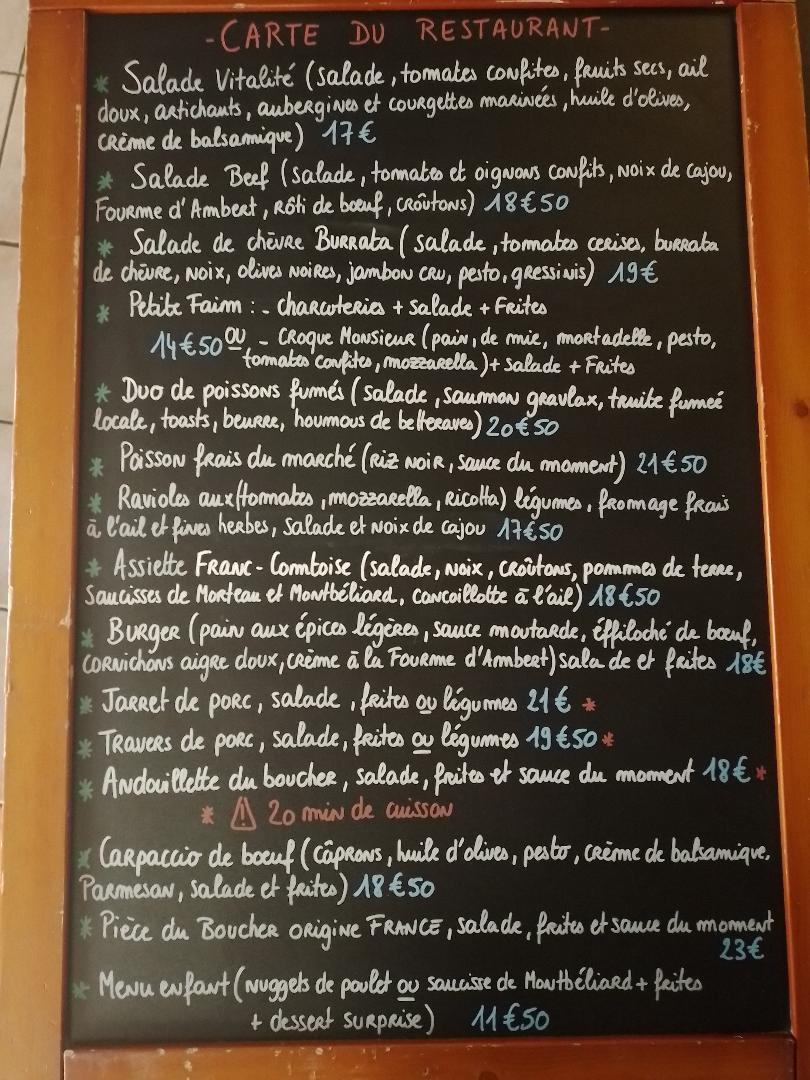 - CARTE DU RESTAURANT -
* Salade Vitalité (salade, tomates confites, fruits secs, ail
doux, artichauts, aubergines et courgettes marinées, huile d'olives,
crème de balsamique) 17€
* Salade Beef (salade, tomates et oignons confits, noix de cajou,
Fourme d'Ambert, rôti de bœuf, croûtons) 18€50
* Salade de chèvre Burrata (salade, tomates cerises, burrata
de chèvre, noix, olives noires, jambon cru, pesto, gressinis) 19€
* Petite Faim : - charcuteries + salade + Frites
14€50 ou - Croque Monsieur (pain, de mie, mortadelle, pesto,
tomates confites, mozzarella) + salade + Frites
* Duo de poissons fumés (salade, saumon gravlax, truite fumeé
locale, toasts, beurre, houmous de betteraves) 20€50
* Poisson frais du marché (riz noir, sauce du moment) 21€50
* Ravioles aux (tomates, mozzarella, ricotta) légumes, fromage frais
à l'ail et fines herbes, salade et noix de cajou 17€50
* Assiette Franc-Comtoise (salade, noix, croûtons, pommes de terre,
Saucisses de Morteau et Montbéliard, cancoillotte à l'ail) 18€50
* Burger (pain aux épices légères, sauce moutarde, éffiloché de bœuf,
cornichons aigre doux, crème à la Fourme d'Ambert) salade et frites 18€
* Jarret de porc, salade, frites ou légumes 21€ *
* Travers de porc, salade, frites ou légumes 19€50 *
* Andouillette du boucher, salade, frites et sauce du moment 18€ *
* ⚠ 20 min de cuisson
* Carpaccio de bœuf (câprons, huile d'olives, pesto, crème de balsamique,
Parmesan, salade et frites) 18€50
* Pièce du Boucher origine FRANCE, salade, frites et sauce du moment
23€
* Menu enfant (nuggets de poulet ou saucisse de Montbéliard + frites
+ dessert surprise) 11€50